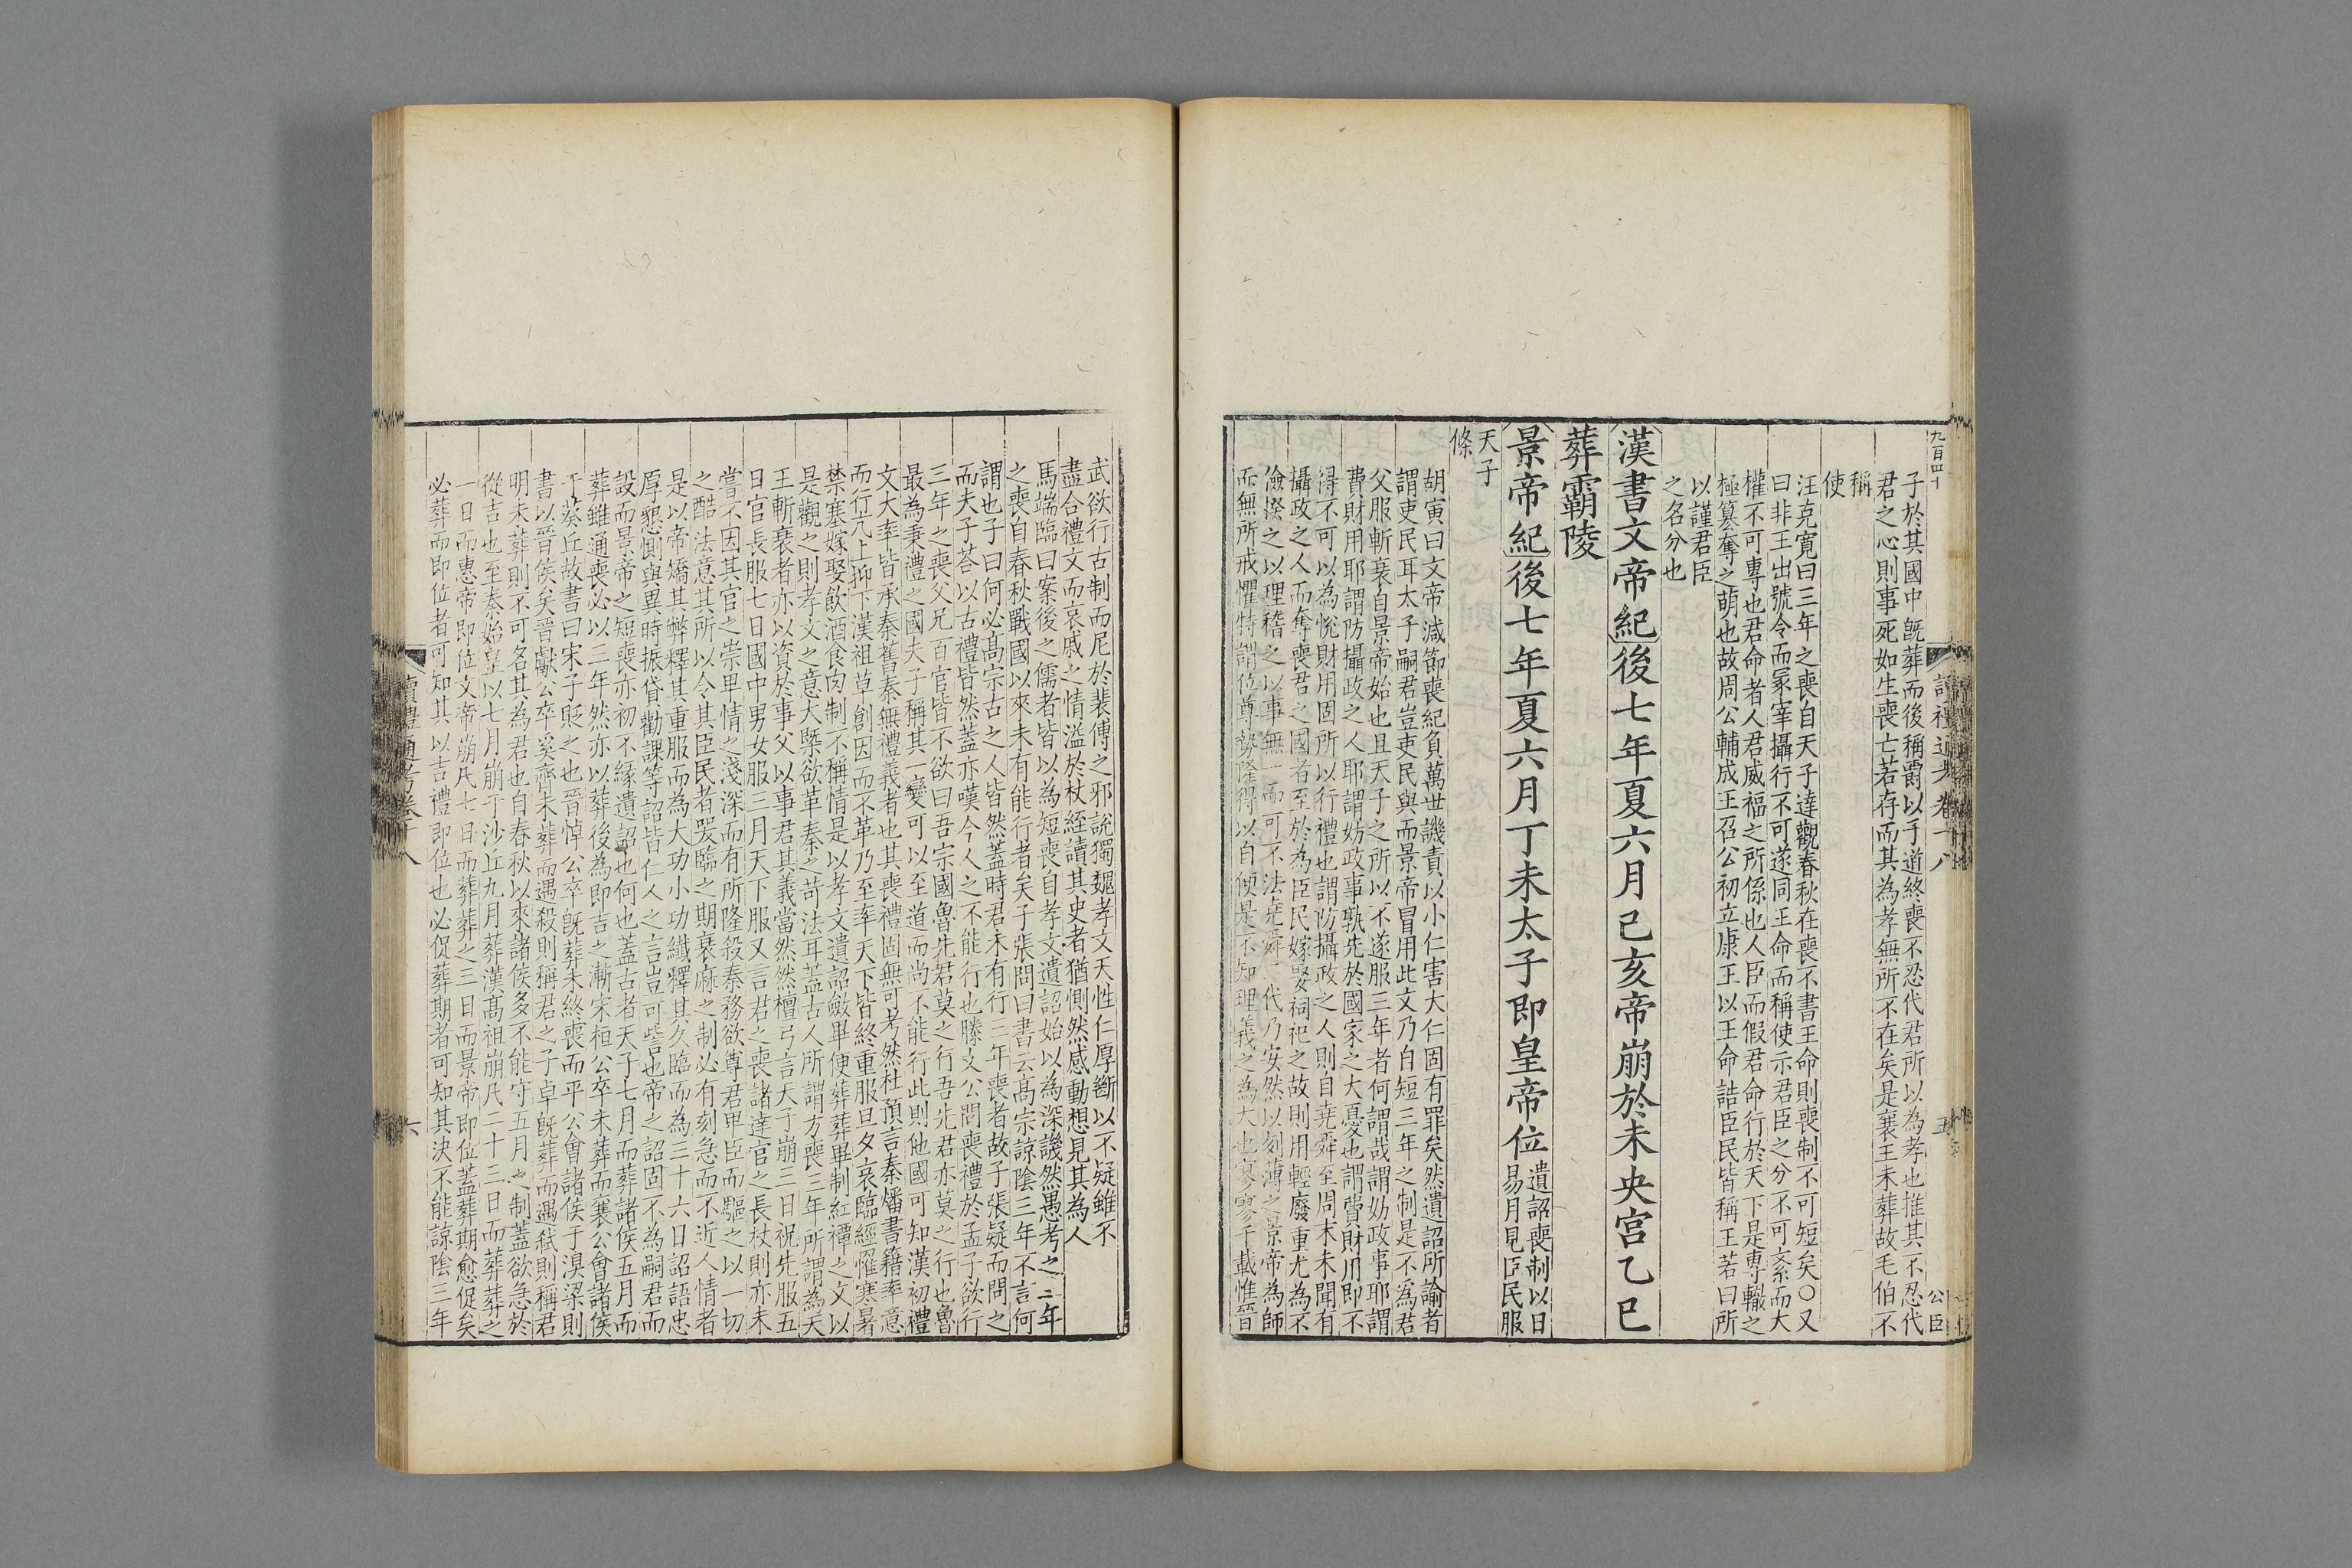 九百四十
讀禮通考卷十八
五
公臣
子於其國中旣葬而後稱爵以手道終喪不忍代君所以為孝也推其不忍代
君之心則事死如生喪亡若存而其為孝無所不在矣是襄王未葬故毛伯不
稱
使
汪克寬曰三年之喪自天子達觀春秋在喪不書王命則喪制不可短矣○又
曰非王出號令而冢宰攝行不可遂同王命而稱使示君臣之分不可紊而大
權不可專也君命者人君威福之所係也人臣而假君命行於天下是專轍之
極篡奪之萌也故周公輔成王召公初立康王以王命誥臣民皆稱王若曰所
以謹君臣
之名分也
漢書文帝紀後七年夏六月己亥帝崩於未央宮乙巳
葬霸陵
景帝紀後七年夏六月丁未太子即皇帝位遺詔喪制以日
易月見臣民服
天子
條
胡寅曰文帝減節喪紀負萬世譏責以小仁害大仁固有罪矣然遺詔所諭者
謂吏民耳太子嗣君豈吏民與而景帝冒用此文乃自短三年之制是不爲君
父服斬衰自景帝始也且天子之所以不遂服三年者何謂哉謂妨政事耶謂
費財用耶謂防攝政之人耶謂妨政事孰先於國家之大憂也謂費財用即不
得不可以為悅財用固所以行禮也謂防攝政之人則自堯舜至周末未聞有
攝政之人而奪喪君之國者至於為臣民嫁娶祠祀之故則用輕廢重尤為不
儉揆之以理稽之以事無一而可不法堯舜三代乃安然以刻薄之景帝為師
而無所戒懼特謂位尊勢隆得以自便是不知理義之為大也寥寥千載惟晉
武欲行古制而尼於裴傅之邪說獨魏孝文天性仁厚斷以不疑雖不
盡合禮文而哀戚之情溢於杖絰讀其史者猶惻然感動想見其為人
馬端臨曰案後之儒者皆以為短喪自孝文遺詔始以為深譏然愚考之三年
之喪自春秋戰國以來未有能行者矣子張問曰書云高宗諒陰三年不言何
謂也子曰何必高宗古之人皆然蓋時君未有行三年喪者故子張疑而問之
而夫子荅以古禮皆然蓋亦嘆今人之不能行也滕文公問喪禮於孟子欲行
三年之喪父兄百官皆不欲曰吾宗國魯先君莫之行吾先君亦莫之行也魯
最為秉禮之國夫子稱其一變可以至道而尚不能行此則他國可知漢初禮
文大率皆承秦舊秦無禮義者也其喪禮固無可考然杜預言秦燔書籍率意
而行亢上抑下漢祖草創因而不革乃至率天下皆終重服旦夕哀臨經罹寒暑
禁塞嫁娶飲酒食肉制不稱情是以孝文遺詔斂畢便葬葬畢制紅禫之文以
是觀之則孝文之意大槩欲革秦之苛法耳蓋古人所謂方喪三年所謂為天
王斬衰者亦以資於事父以事君其義當然然檀弓言天子崩三日祝先服五
日官長服七日國中男女服三月天下服又言君之喪諸達官之長杖則亦未
嘗不因其官之崇卑情之淺深而有所隆殺秦務欲尊君卑臣而驅之以一切
之酷法意其所以令其臣民者哭臨之期衰麻之制必有刻急而不近人情者
是以帝矯其弊釋其重服而為大功小功纖釋其久臨而為三十六日詔語忠
厚懇惻與異時振貸勸課等詔皆仁人之言豈可訾也帝之詔固不為嗣君而
設而景帝之短喪亦初不緣遺詔也何也蓋古者天子七月而葬諸侯五月而
葬雖通喪必以三年然亦以葬後為即吉之漸宋桓公卒未葬而襄公會諸侯
于葵丘故書曰宋子貶之也晉悼公卒旣葬未終喪而平公會諸侯于溴梁則
書以晉侯矣晉獻公卒奚齊未葬而遇殺則稱君之子卓旣葬而遇弑則稱君
明未葬則不可名其為君也自春秋以來諸侯多不能守五月之制蓋欲急於
從吉也至秦始皇以七月崩于沙丘九月葬漢高祖崩凡二十三日而葬葬之
一日而惠帝即位文帝崩凡七日而葬葬之三日而景帝即位蓋葬期愈促矣
必葬而即位者可知其以吉禮即位也必促葬期者可知其決不能諒陰三年
讀禮通考卷十八
六